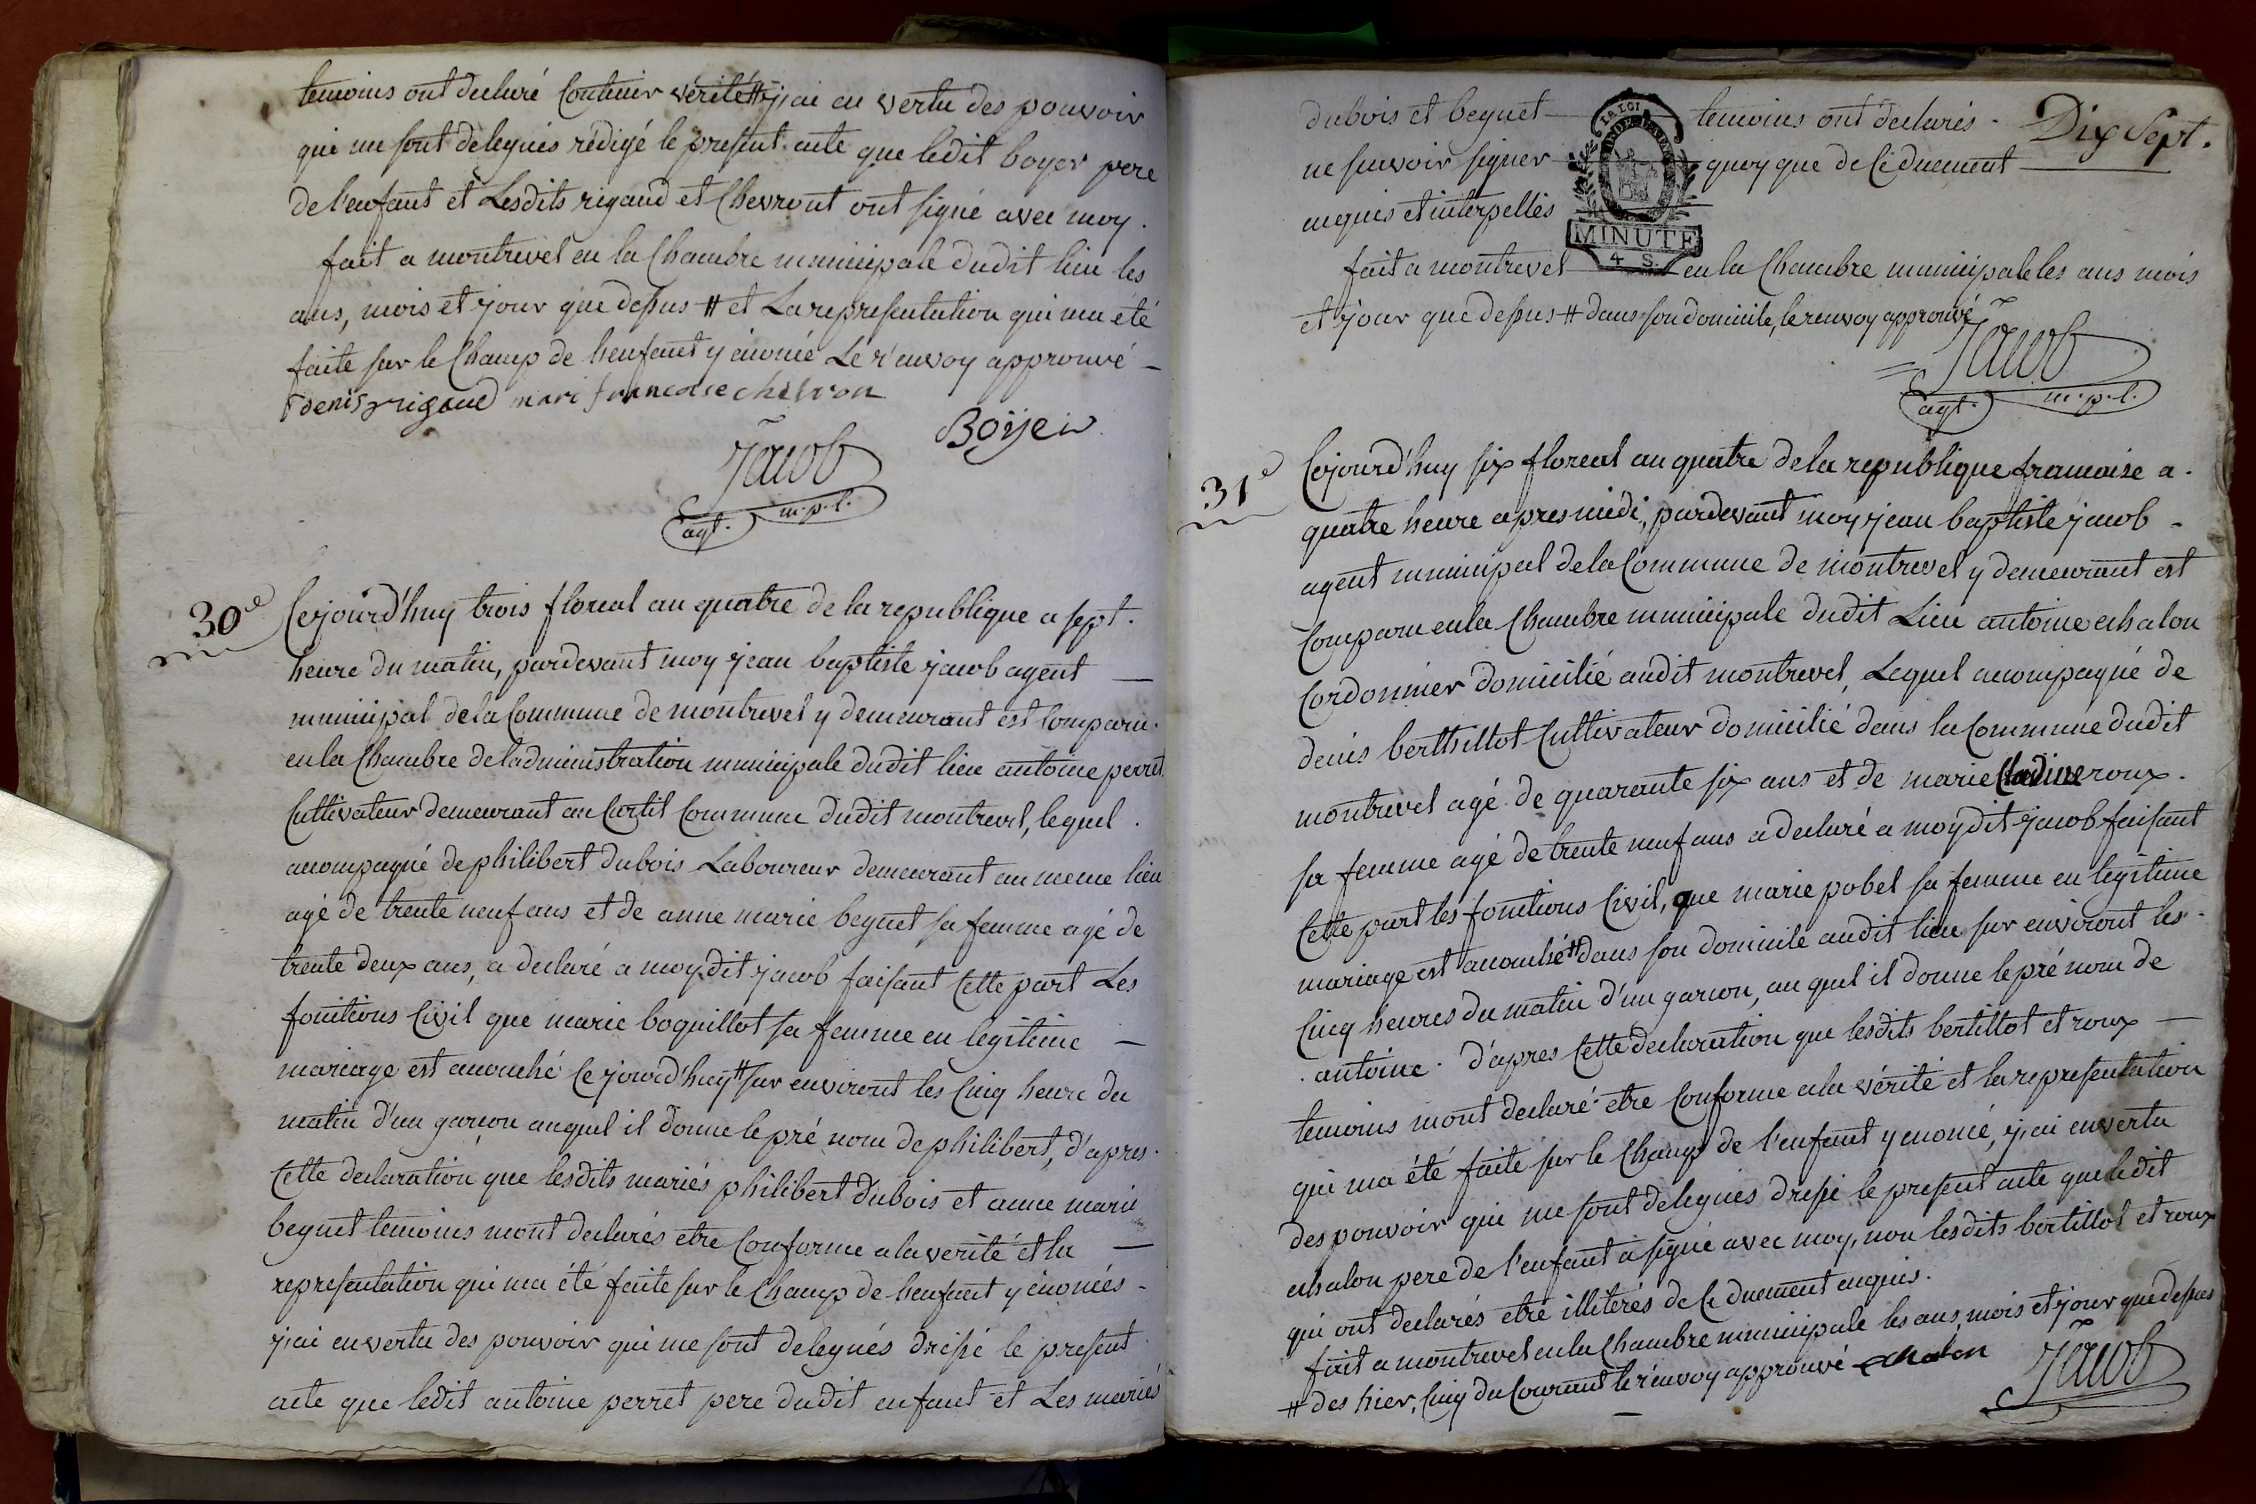 temoins ont declaré Contenir vérité # j'ai en vertu des pouvoir
qui me sont delegués rédigé le present acte que ledit boyer pere
de l'enfant et Lesdits rigaud et Chevront ont signé avec moy.
fait a montrevel en la Chambre municipale dudit lieu les
ans, mois et jour que dessus # et La representation qui ma été
faite sur le Champ de lienfant y enoncé Le r'envoy approuvé
denis rigaud mari francoise chevron
Boÿer
Jacob
agt. m.p.l.
30e
Cejourd'huy trois floreal an quatre de la republique a sept.
heure du matin, pardevant moy jean baptiste jacob agent
municipal de la Commune de montrevel y demeurant est Comparu.
en la Chambre de l'administration municipale dudit lieu antoine perret
Cultivateur demeurant au Curtil Commune dudit montrevel, lequel.
acompagné de philibert dubois Laboureur demeurant au meme lieu
agé de trente neuf ans et de anne marie beguet sa femme agé de
trente deux ans, a declaré a moydit jacob faisant Cette part Les
fonitions Civil que marie boquillot sa femme en legitime
mariage est acouché Ce jourd'huy # sur environt les Cinq heure du
matin d'un garcon auquel il donne le pré nom de philibert, d'apres.
Cette declaration que lesdits mariés philibert dubois et anne marie
beguet temoins mont declarés etre Conforme a la verité et la
representation qui ma été faite sur le Champ de lienfant y énoncés
j'ai en vertu des pouvoir qui me sont delegués dressé le present
acte que ledit antoine perret pere dudit enfant et Les mariés
Dix Sept.
dubois et beguet temoins ont declarés.
ne savoir signer quoy que de Ce duement
enquis et interpellés
LA LOI
MINUTE
4 S.
fait a montrevel en la Chambre municipale les ans mois
et jour que dessus # dans son domicile, le renvoy approuvé
Jacob
agt. m.p.l.
31e
Cejourd'huy six floreal an quatre de la republique francaise a.
quatre heure apres midi, pardevant moy jean baptiste jacob
agent municipal de la Commune de montrevel y demeurant est
Comparu en la Chambre municipale dudit Lieu antoine echalon
Cordonnier domicilié audit montrevel, Lequel acompagné de
denis berthillot Cultivateur domicilié dans la Commune dudit
montrevel agé de quarante six ans et de marie Cladine roux.
sa femme agé de trente neuf ans a declaré a moydit jacob faisant
Cette part les fonitions Civil, que marie pobel sa femme en legitime
mariage est acouché # dans son domicile audit lieu sur environt les
Cinq heures du matin d'un garcon, au quel il donne le pré nom de
antoine. d'apres Cette declaration que lesdits bertillot et roux
temoins mont declaré etre Conforme a la vérité et la representation
qui ma été faite sur le Champ de l'enfant y enoncé, j'ai en vertu
des pouvoir qui me sont delegués dressé le present acte que ledit
echalon pere de l'enfant a signé avec moy, non lesdits bertillot et roux
qui ont declarés etre illiterés de Ce duement enquis.
fait a montrevel en la Chambre municipale les ans, mois et jour que dessus
# des hier, Cinq du Courant le r'envoy approuvé echalon
Jacob